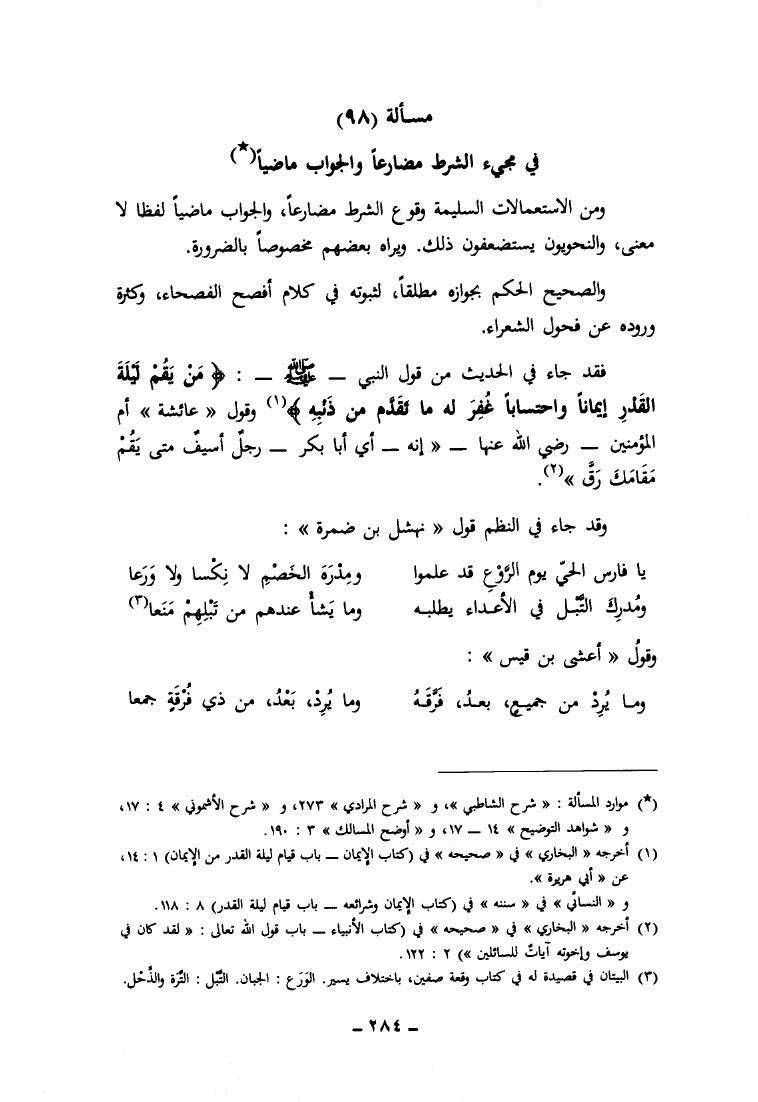 مسألة (٩٨)
في مجيء الشرط مضارعاً والجواب ماضياً(★)
ومن الاستعمالات السليمة وقوع الشرط مضارعاً، والجواب ماضياً لفظا لا
معنى، والنحويون يستضعفون ذلك. ويراه بعضهم مخصوصاً بالضرورة.
والصحيح الحكم بجوازه مطلقاً، لثبوته في كلام أفصح الفصحاء، وكثرة
وروده عن فحول الشعراء.
فقد جاء في الحديث من قول النبي — ﷺ — : ﴿ مَنْ يَقُمْ لَيْلَةَ
القَدْرِ إيماناً واحتساباً غُفِرَ له ما تَقَدَّم من ذَنْبِهِ ﴾(١) وقول « عائشة » أم
المؤمنين — رضي الله عنها — « إنه — أي أبا بكر — رجلٌ أسيفٌ متى يَقُمْ
مَقَامَكَ رَقَّ »(٢).
وقد جاء في النظم قول « نهشل بن ضمرة » :
يا فارس الحيّ يوم الرَّوْعِ قد علموا ومِدْرَهَ الخَصْمِ لا نِكْسا ولا وَرَعا
ومُدرِكَ التَّبْـل في الأعـداء يطلبـه وما يَشأْ عندهم من تَبْلِهِمْ مَنَعا(٣)
وقولُ « أعشى بن قيس » :
ومـا يُرِدْ من جميـعٍ، بعـدُ، فَرَّقَـهُ وما يُرِدْ، بَعْدُ، من ذي فُرْقَةٍ جمعا
(★) موارد المسألة : « شرح الشاطبي »، و « شرح المرادي » ٢٧٣، و « شرح الأشموني » ٤ : ١٧،
و « شواهد التوضيح » ١٤ — ١٧، و « أوضح المسالك » ٣ : ١٩٠.
(١) أخرجه « البخاري » في « صحيحه » في (كتاب الإيمان — باب قيام ليلة القدر من الإيمان) ١ : ١٤،
عن « أبي هريرة ».
و « النسائي » في « سننه » في (كتاب الإيمان وشرائعه — باب قيام ليلة القدر) ٨ : ١١٨.
(٢) أخرجه « البخاري » في « صحيحه » في (كتاب الأنبياء — باب قول الله تعالى : « لقد كان في
يوسف وإخوته آياتٌ للسائلين ») ٢ : ١٢٢.
(٣) البيتان في قصيدة له في كتاب وقعة صفين، باختلاف يسير. الوَرَع : الجبان. التَّبْل : التَّرَة والذَّحْل.
— ٢٨٤ —